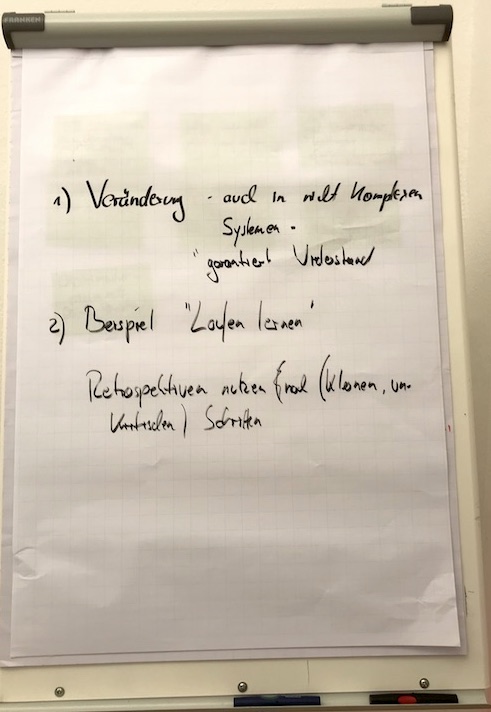 FRANKEN
1) Veränderung - auch in nicht komplexen
Systemen -
" garantiert Widerstand
2) Beispiel "Laufen lernen"
Retrospektiven nutzen nach (kleinen, un-
kritischen) Schritten